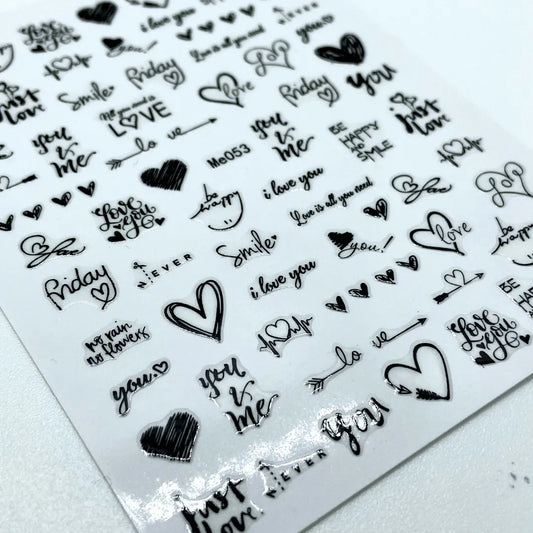 Love
you
i love you
Love is all you need
you!
Friday
Smile
All you need is
LOVE
love
Friday
you
Just
love
you
&
me
lo ve
Me053
you
&
me
BE
HAPPY
SMILE
Just
love
Love
you
be
happy
i love you
Love is all you need
love
Friday
EVER
Smile
you!
love
be
happy
no rain
no flowers
i love you
BE
you
you
&
me
lo ve
Love
you
you
Just
love
EVER